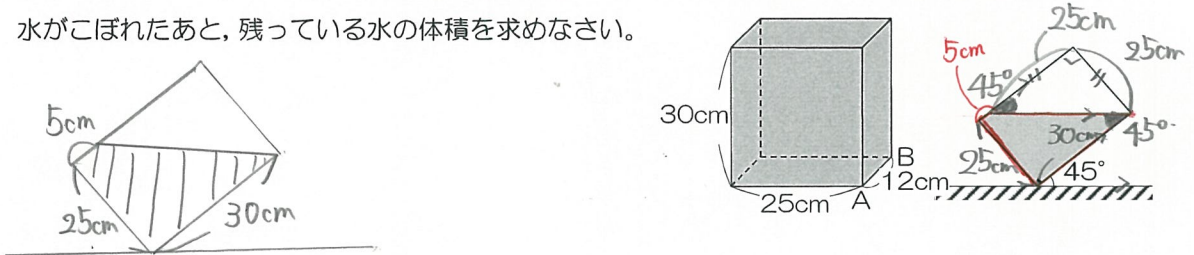 水がこぼれたあと，残っている水の体積を求めなさい。
5cm
25cm
30cm
30cm
25cm
A
B
12cm
5cm
25cm
25cm
45°
45°
30cm
25cm
45°